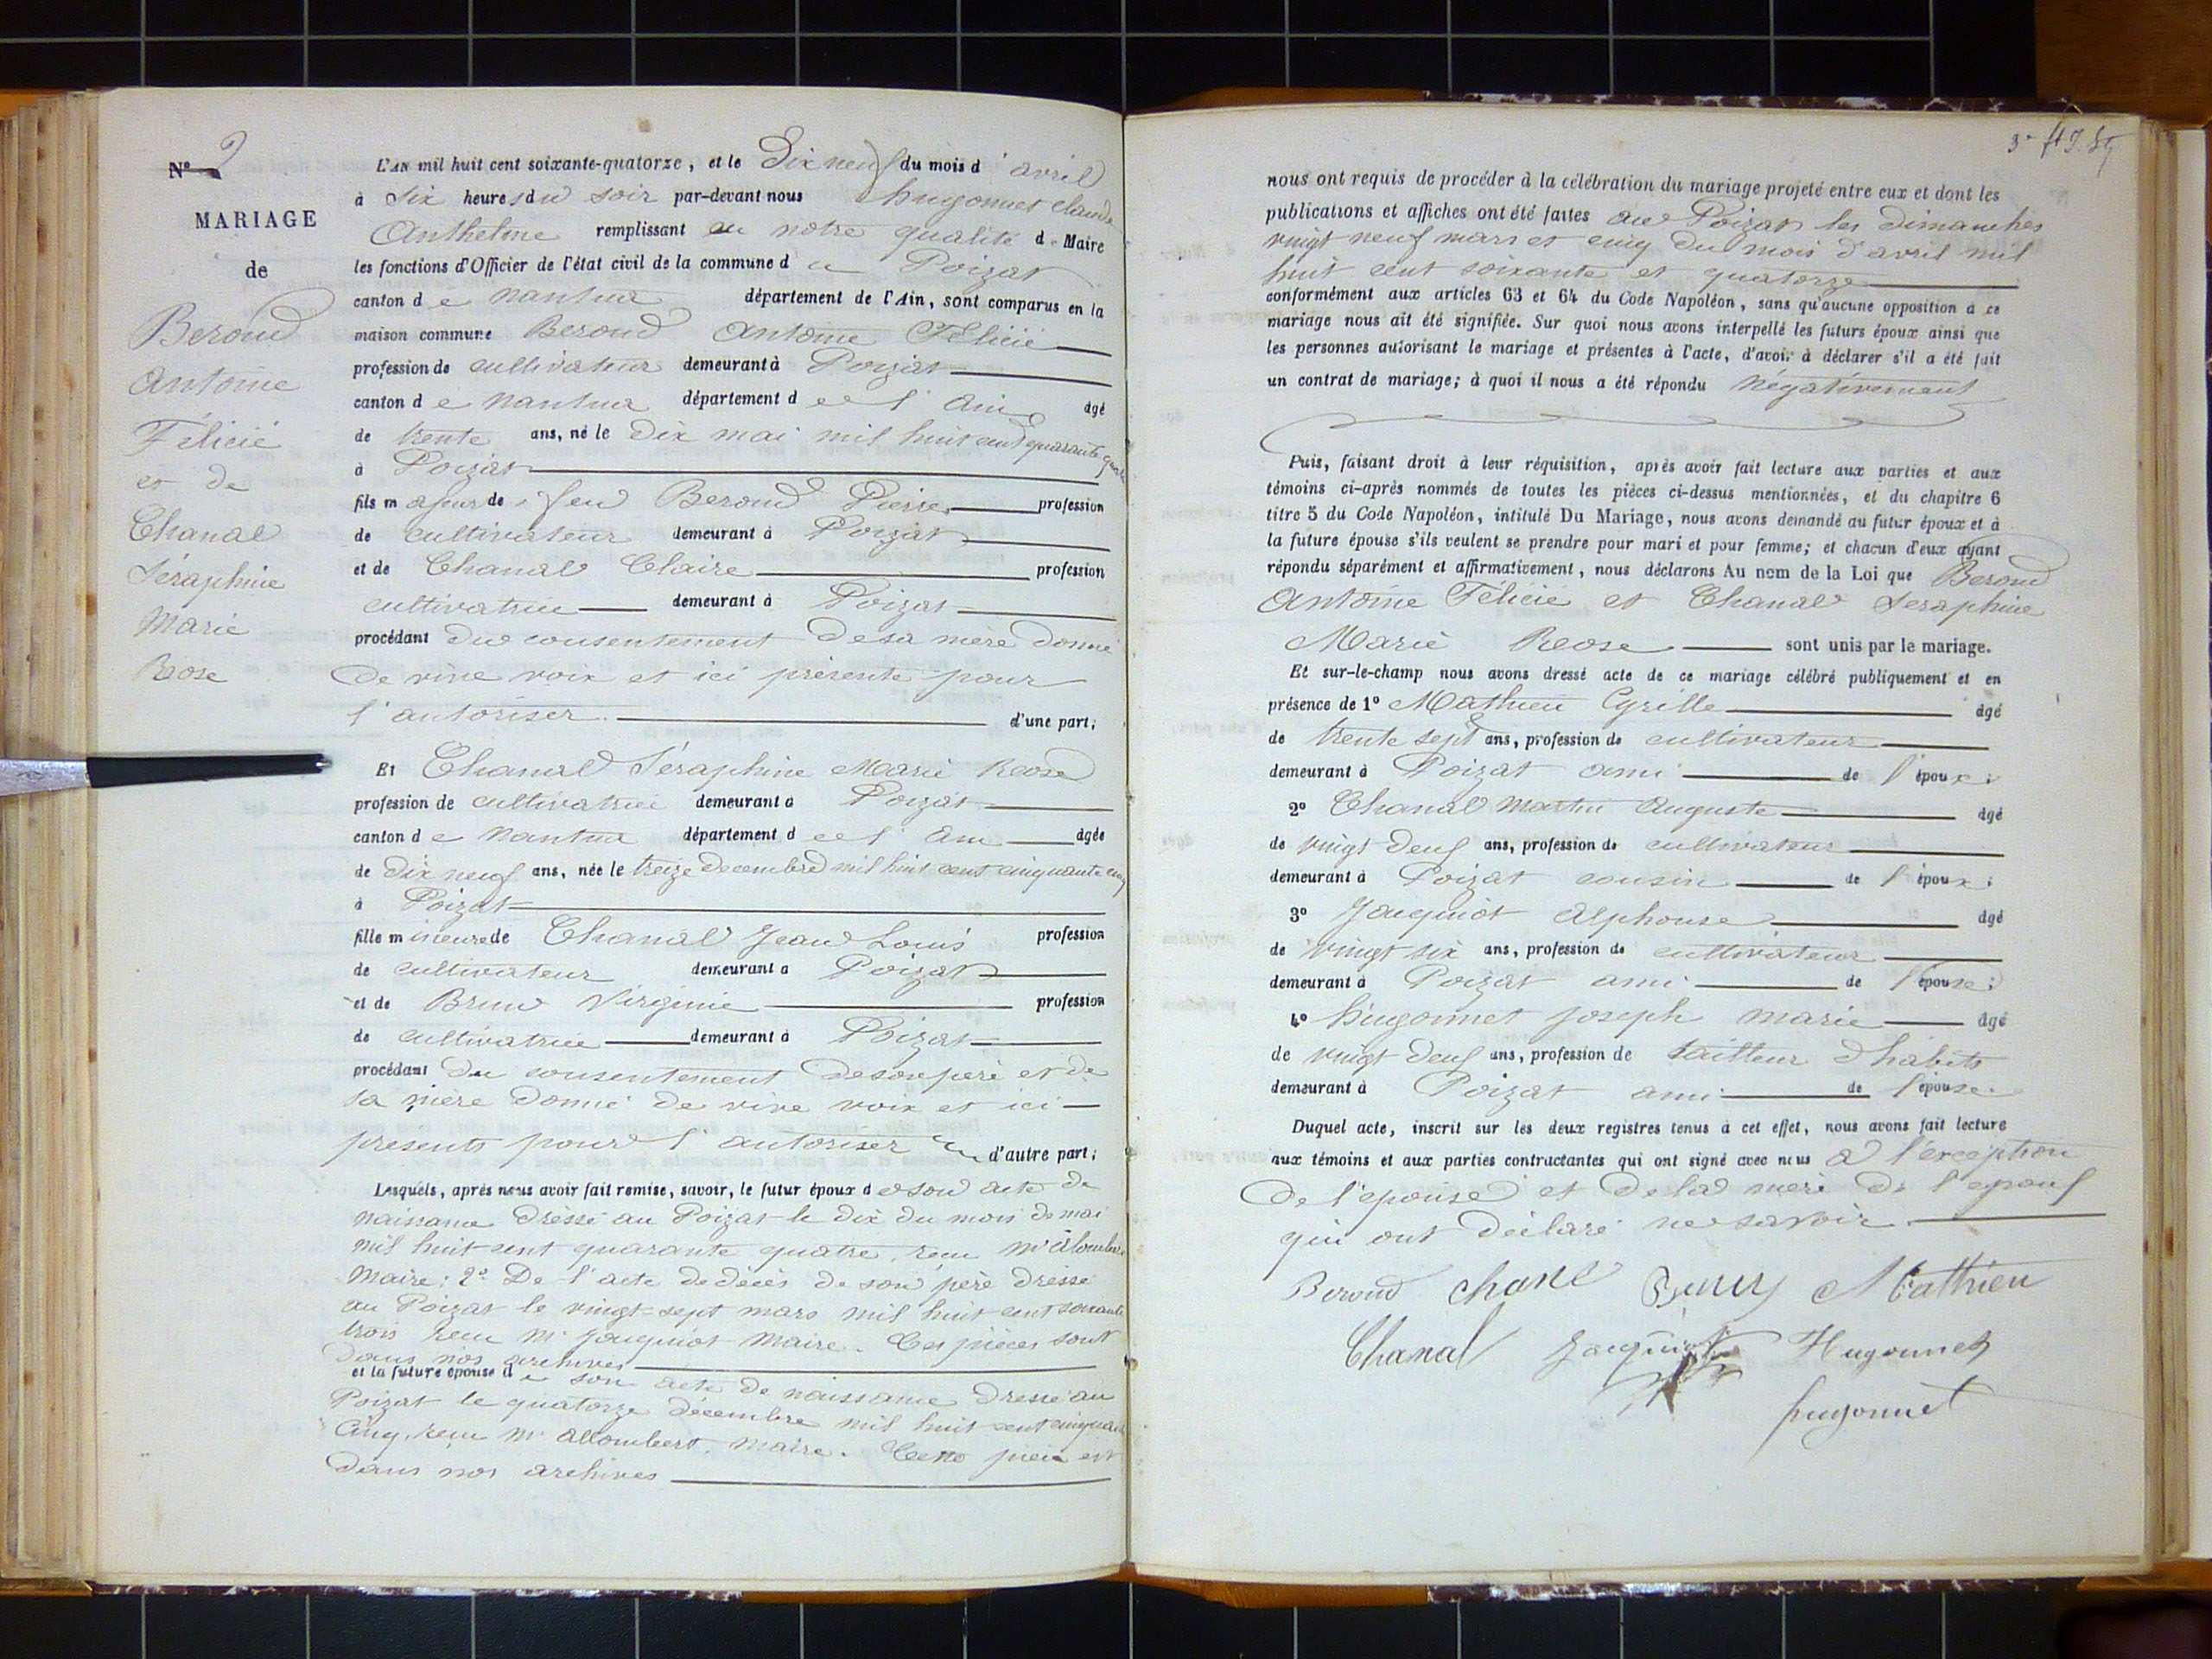 N° 2
MARIAGE
de
Beroud
Antoine
Félicié
et de
Chanal
Séraphine
Marie
Rose
L'AN mil huit cent soixante-quatorze, et le Dix neuf du mois d'avril
à Six heures du soir par-devant nous hugonnet claude
Anthelme remplissant en notre qualité de Maire
les fonctions d'Officier de l'état civil de la commune du Poizat
canton de Nantua département de l'Ain, sont comparus en la
maison commune Beroud Antoine Félicié
profession de cultivateur demeurant à Poizat
canton de Nantua département de l'Ain âgé
de trente ans, né le Dix mai mil huit cent quarante quatre
à Poizat
fils majeur de feu Beroud Pierre profession
de cultivateur demeurant à Poizat
et de Chanal Claire profession
cultivatrice demeurant à Poizat
procédant du consentement de sa mère donné
de vive voix et ici présente pour
l'autoriser. d'une part;
Et Chanal Séraphine Marie Rose
profession de cultivatrice demeurant à Poizat
canton de Nantua département de l'Ain âgée
de Dix neuf ans, née le treize décembre mil huit cent cinquante cinq
à Poizat
fille mineure de Chanal Jean Louis profession
de cultivateur demeurant à Poizat
et de Brun Virginie profession
de cultivatrice demeurant à Poizat
procédant du consentement de son père et de
sa mère donné de vive voix et ici
présents pour l'autoriser d'autre part;
Lesquels, après nous avoir fait remise, savoir, le futur époux de son acte de
naissance dressé au Poizat le dix du mois de mai
mil huit cent quarante quatre, reçu Mr Alombert
Maire: 2° De l'acte de décès de son père dressé
au Poizat le vingt-sept mars mil huit cent soixante
trois reçu Mr Jacquiot Maire. Ces pièces sont
dans nos archives
et la future épouse de son acte de naissance dressé au
Poizat le quatorze décembre mil huit cent cinquante
cinq, reçu Mr Allombert, Maire. Cette pièce est
dans nos archives
nous ont requis de procéder à la célébration du mariage projeté entre eux et dont les
publications et affiches ont été faites au Poizat les dimanches
vingt neuf mars et cinq du mois d'avril mil
huit cent soixante et quatorze
conformément aux articles 63 et 64 du Code Napoléon, sans qu'aucune opposition à ce
mariage nous ait été signifiée. Sur quoi nous avons interpellé les futurs époux ainsi que
les personnes autorisant le mariage et présentes à l'acte, d'avoir à déclarer s'il a été fait
un contrat de mariage; à quoi il nous a été répondu Négativement
Puis, faisant droit à leur réquisition, après avoir fait lecture aux parties et aux
témoins ci-après nommés de toutes les pièces ci-dessus mentionnées, et du chapitre 6
titre 5 du Code Napoléon, intitulé Du Mariage, nous avons demandé au futur époux et à
la future épouse s'ils veulent se prendre pour mari et pour femme; et chacun d'eux ayant
répondu séparément et affirmativement, nous déclarons Au nom de la Loi que Beroud
Antoine Félicié et Chanal Seraphine
Marie Rose sont unis par le mariage.
Et sur-le-champ nous avons dressé acte de ce mariage célébré publiquement et en
présence de 1° Mathieu Cyrille âgé
de trente sept ans, profession de cultivateur
demeurant à Poizat ami de l'époux;
2° Chanal Martin Auguste âgé
de vingt deux ans, profession de cultivateur
demeurant à Poizat cousin de l'époux;
3° Jacquiot Alphonse âgé
de vingt six ans, profession de cultivateur
demeurant à Poizat ami de l'épouse;
4° hugonnet joseph marie âgé
de vingt deux ans, profession de tailleur d'habits
demeurant à Poizat ami de l'épouse.
Duquel acte, inscrit sur les deux registres tenus à cet effet, nous avons fait lecture
aux témoins et aux parties contractantes qui ont signé avec nous à l'exception
de l'épouse et de la mère de l'époux
qui ont déclaré ne savoir.
Beroud Mathieu
Chanal Jacquiot Hugonnet
hugonnet